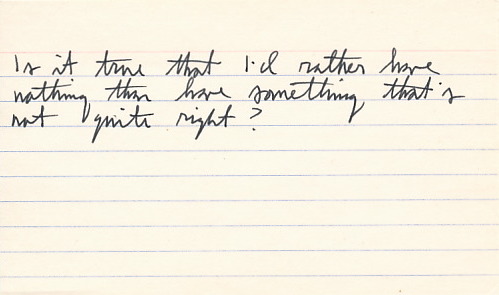 Is it true that I'd rather have
nothing than have something that's
not quite right?